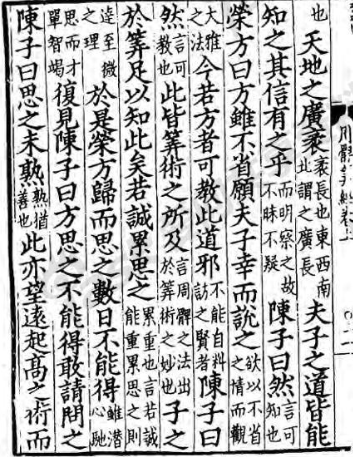 也天地之廣袤袤長也東西南北謂之廣長夫子之道皆能
知之其信有之乎而明察之故不昧不疑陳子曰然言可知也
榮方曰方雖不省願夫子幸而說之欲以不省之情而觀
大雅之法今若方者可教此道邪不能自料訪之賢者陳子曰
然言可教也此皆筭術之所及言周髀之法出於筭術之妙也子之
於筭足以知此矣若誠累思之累重也言若誠能重累思之則
達至微之理於是榮方歸而思之數日不能得雖潛心馳
思而才單智竭復見陳子曰方思之不能得敢請問之
陳子曰思之未熟熟猶善也此亦望遠起高之術而